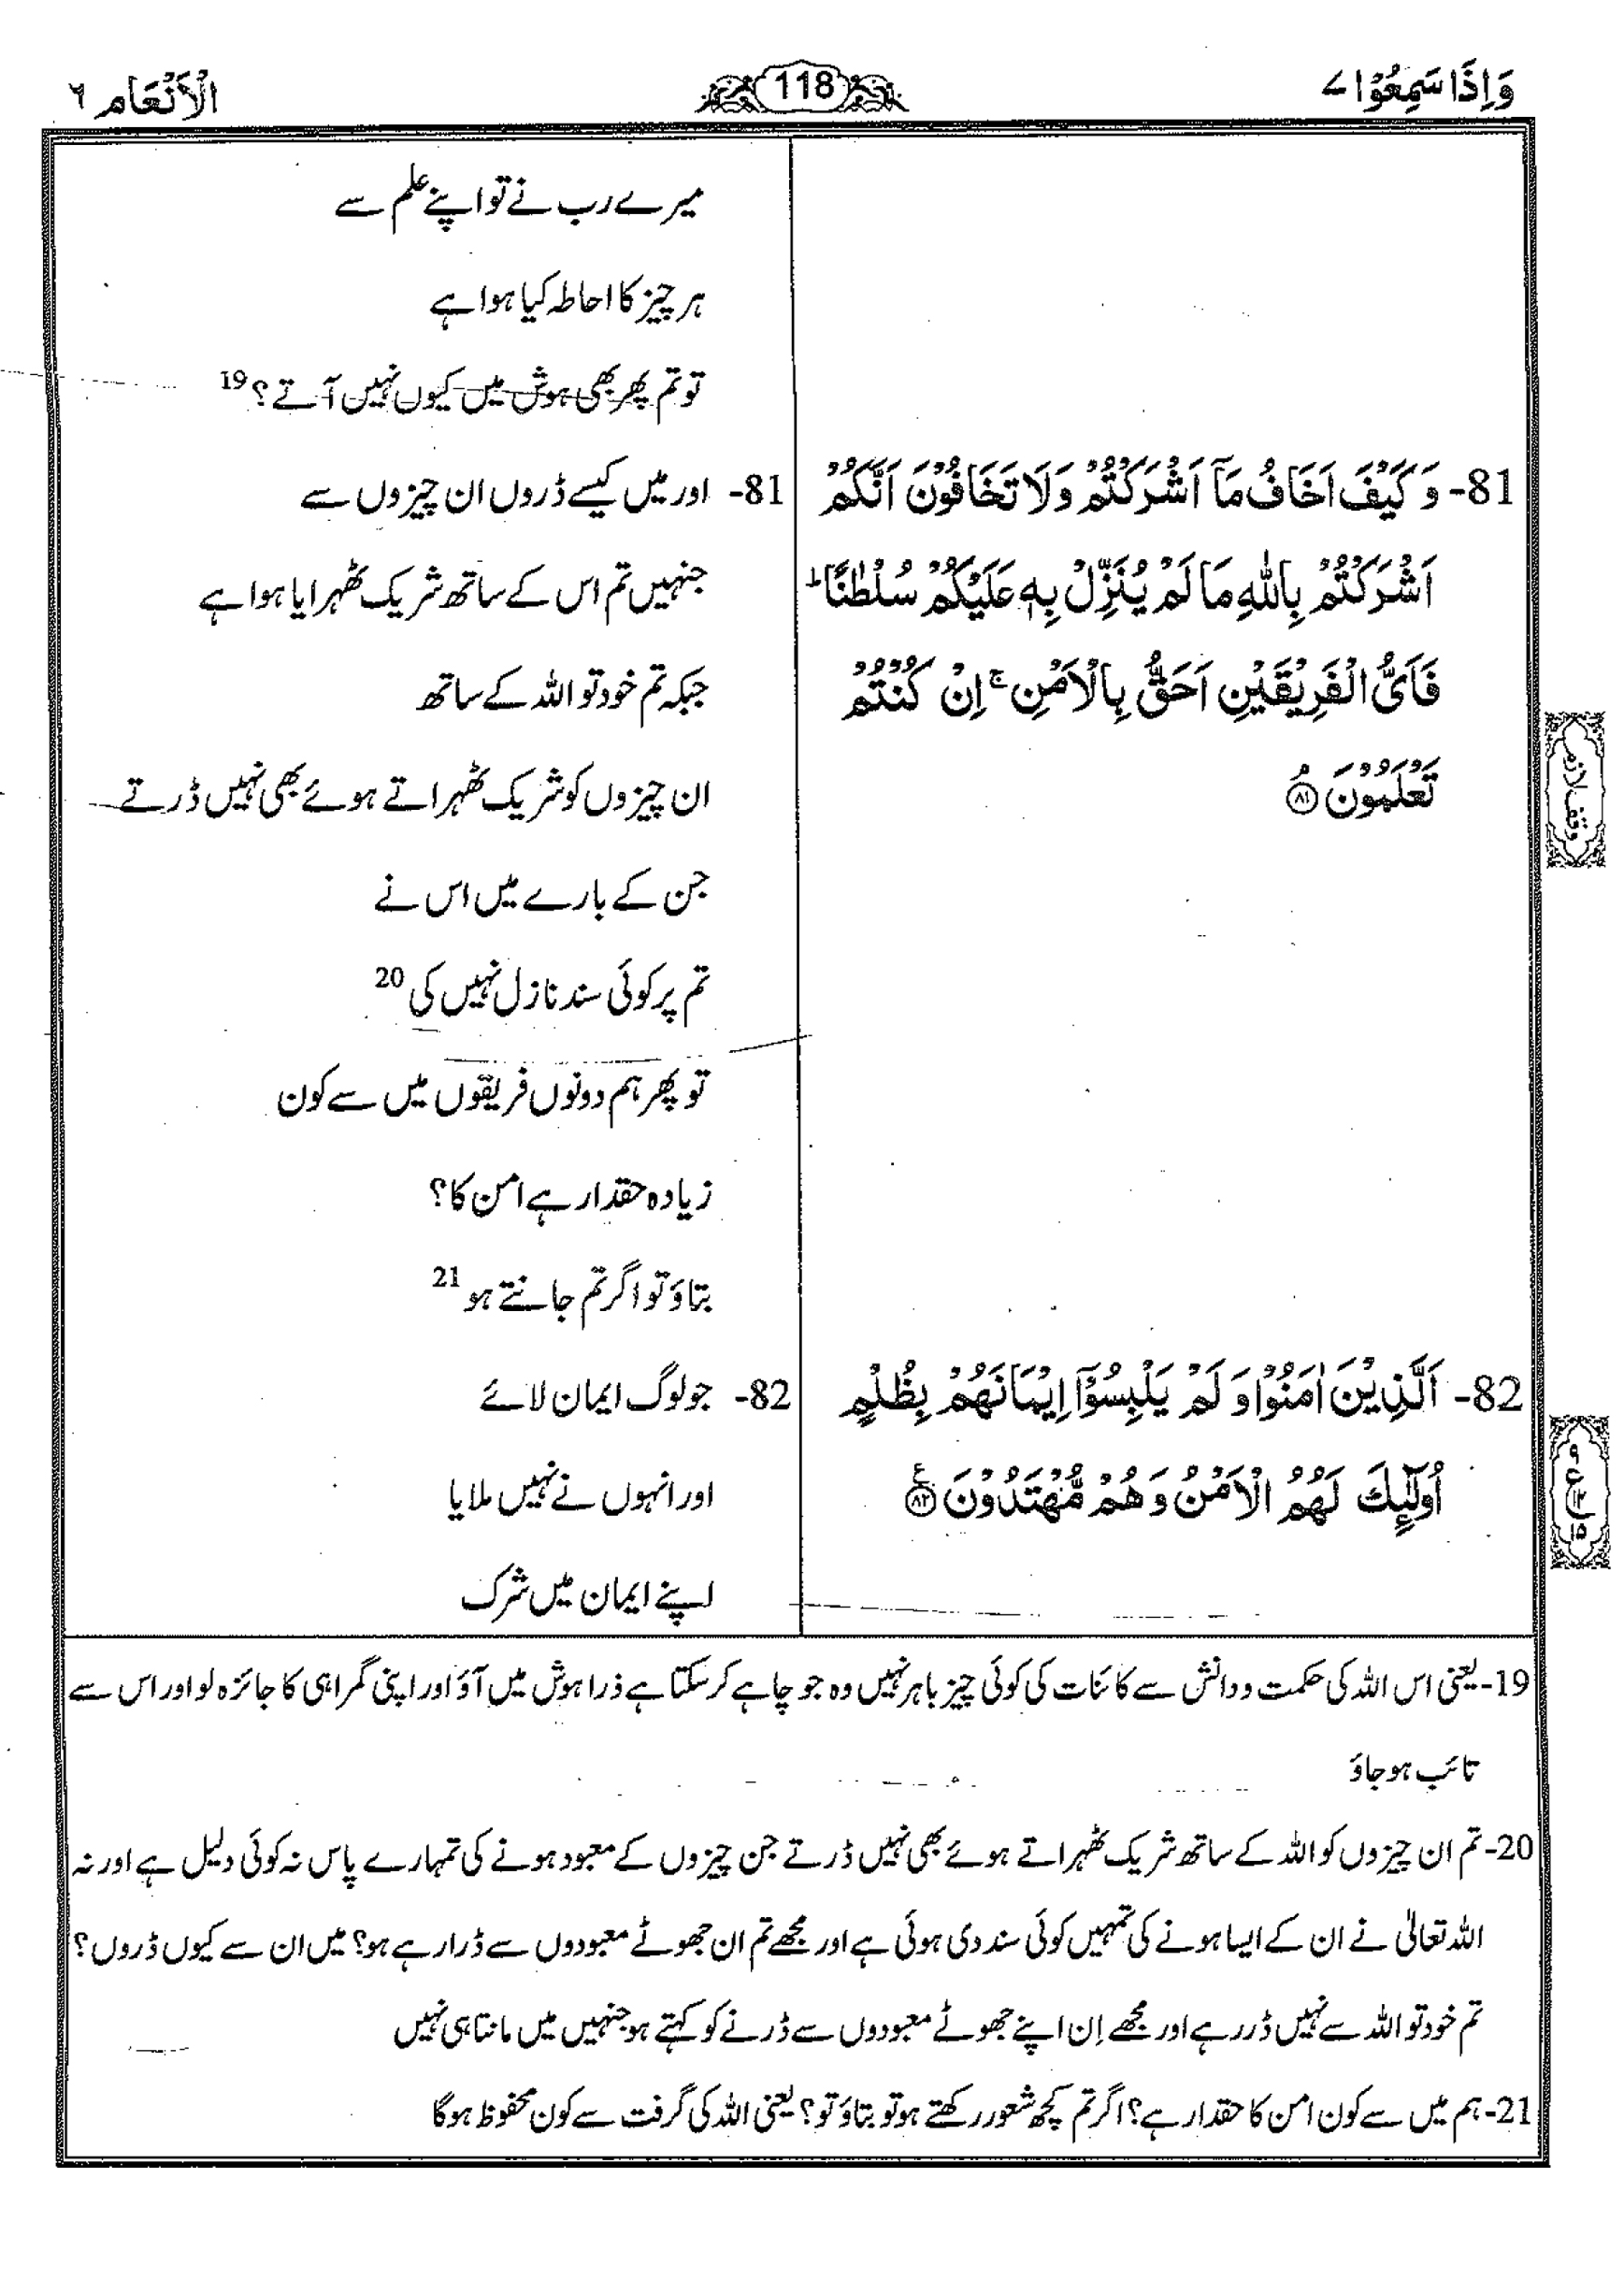 وَاِذَا سَمِعُوْا ٧
118
الْاَنْعَام ٦
میرے رب نے تو اپنے علم سے
ہر چیز کا احاطہ کیا ہوا ہے
تو تم پھر بھی ہوش میں کیوں نہیں آتے؟ 19
81- وَكَيْفَ اَخَافُ مَآ اَشْرَكْتُمْ وَلَا تَخَافُوْنَ اَنَّكُمْ
اَشْرَكْتُمْ بِاللّٰهِ مَا لَمْ يُنَزِّلْ بِهٖ عَلَيْكُمْ سُلْطٰنًا ؕ
فَاَىُّ الْفَرِيْقَيْنِ اَحَقُّ بِالْاَمْنِ ۚ اِنْ كُنْتُمْ
تَعْلَمُوْنَ ۘ ﴿٨١﴾
وقف لازم
81- اور میں کیسے ڈروں ان چیزوں سے
جنہیں تم اس کے ساتھ شریک ٹھہرایا ہوا ہے
جبکہ تم خود تو اللہ کے ساتھ
ان چیزوں کو شریک ٹھہراتے ہوئے بھی نہیں ڈرتے
جن کے بارے میں اس نے
تم پر کوئی سند نازل نہیں کی 20
تو پھر ہم دونوں فریقوں میں سے کون
زیادہ حقدار ہے امن کا؟
بتاؤ تو اگر تم جانتے ہو 21
82- اَلَّذِيْنَ اٰمَنُوْا وَ لَمْ يَلْبِسُوْٓا اِيْمَانَهُمْ بِظُلْمٍ
اُولٰٓئِكَ لَهُمُ الْاَمْنُ وَهُمْ مُّهْتَدُوْنَ ﴿٨٢﴾ ع
٩
ع ١٢
١٥
82- جو لوگ ایمان لائے
اور انہوں نے نہیں ملایا
اپنے ایمان میں شرک
19- یعنی اس اللہ کی حکمت و دانش سے کائنات کی کوئی چیز باہر نہیں وہ جو چاہے کر سکتا ہے ذرا ہوش میں آؤ اور اپنی گمراہی کا جائزہ لو اور اس سے
تائب ہو جاؤ
20- تم ان چیزوں کو اللہ کے ساتھ شریک ٹھہراتے ہوئے بھی نہیں ڈرتے جن چیزوں کے معبود ہونے کی تمہارے پاس نہ کوئی دلیل ہے اور نہ
اللہ تعالیٰ نے ان کے ایسا ہونے کی تمہیں کوئی سند دی ہوئی ہے اور مجھے تم ان جھوٹے معبودوں سے ڈرا رہے ہو؟ میں ان سے کیوں ڈروں؟
تم خود تو اللہ سے نہیں ڈر رہے اور مجھے اِن اپنے جھوٹے معبودوں سے ڈرنے کو کہتے ہو جنہیں میں مانتا ہی نہیں
21- ہم میں سے کون امن کا حقدار ہے؟ اگر تم کچھ شعور رکھتے ہو تو بتاؤ تو؟ یعنی اللہ کی گرفت سے کون محفوظ ہوگا